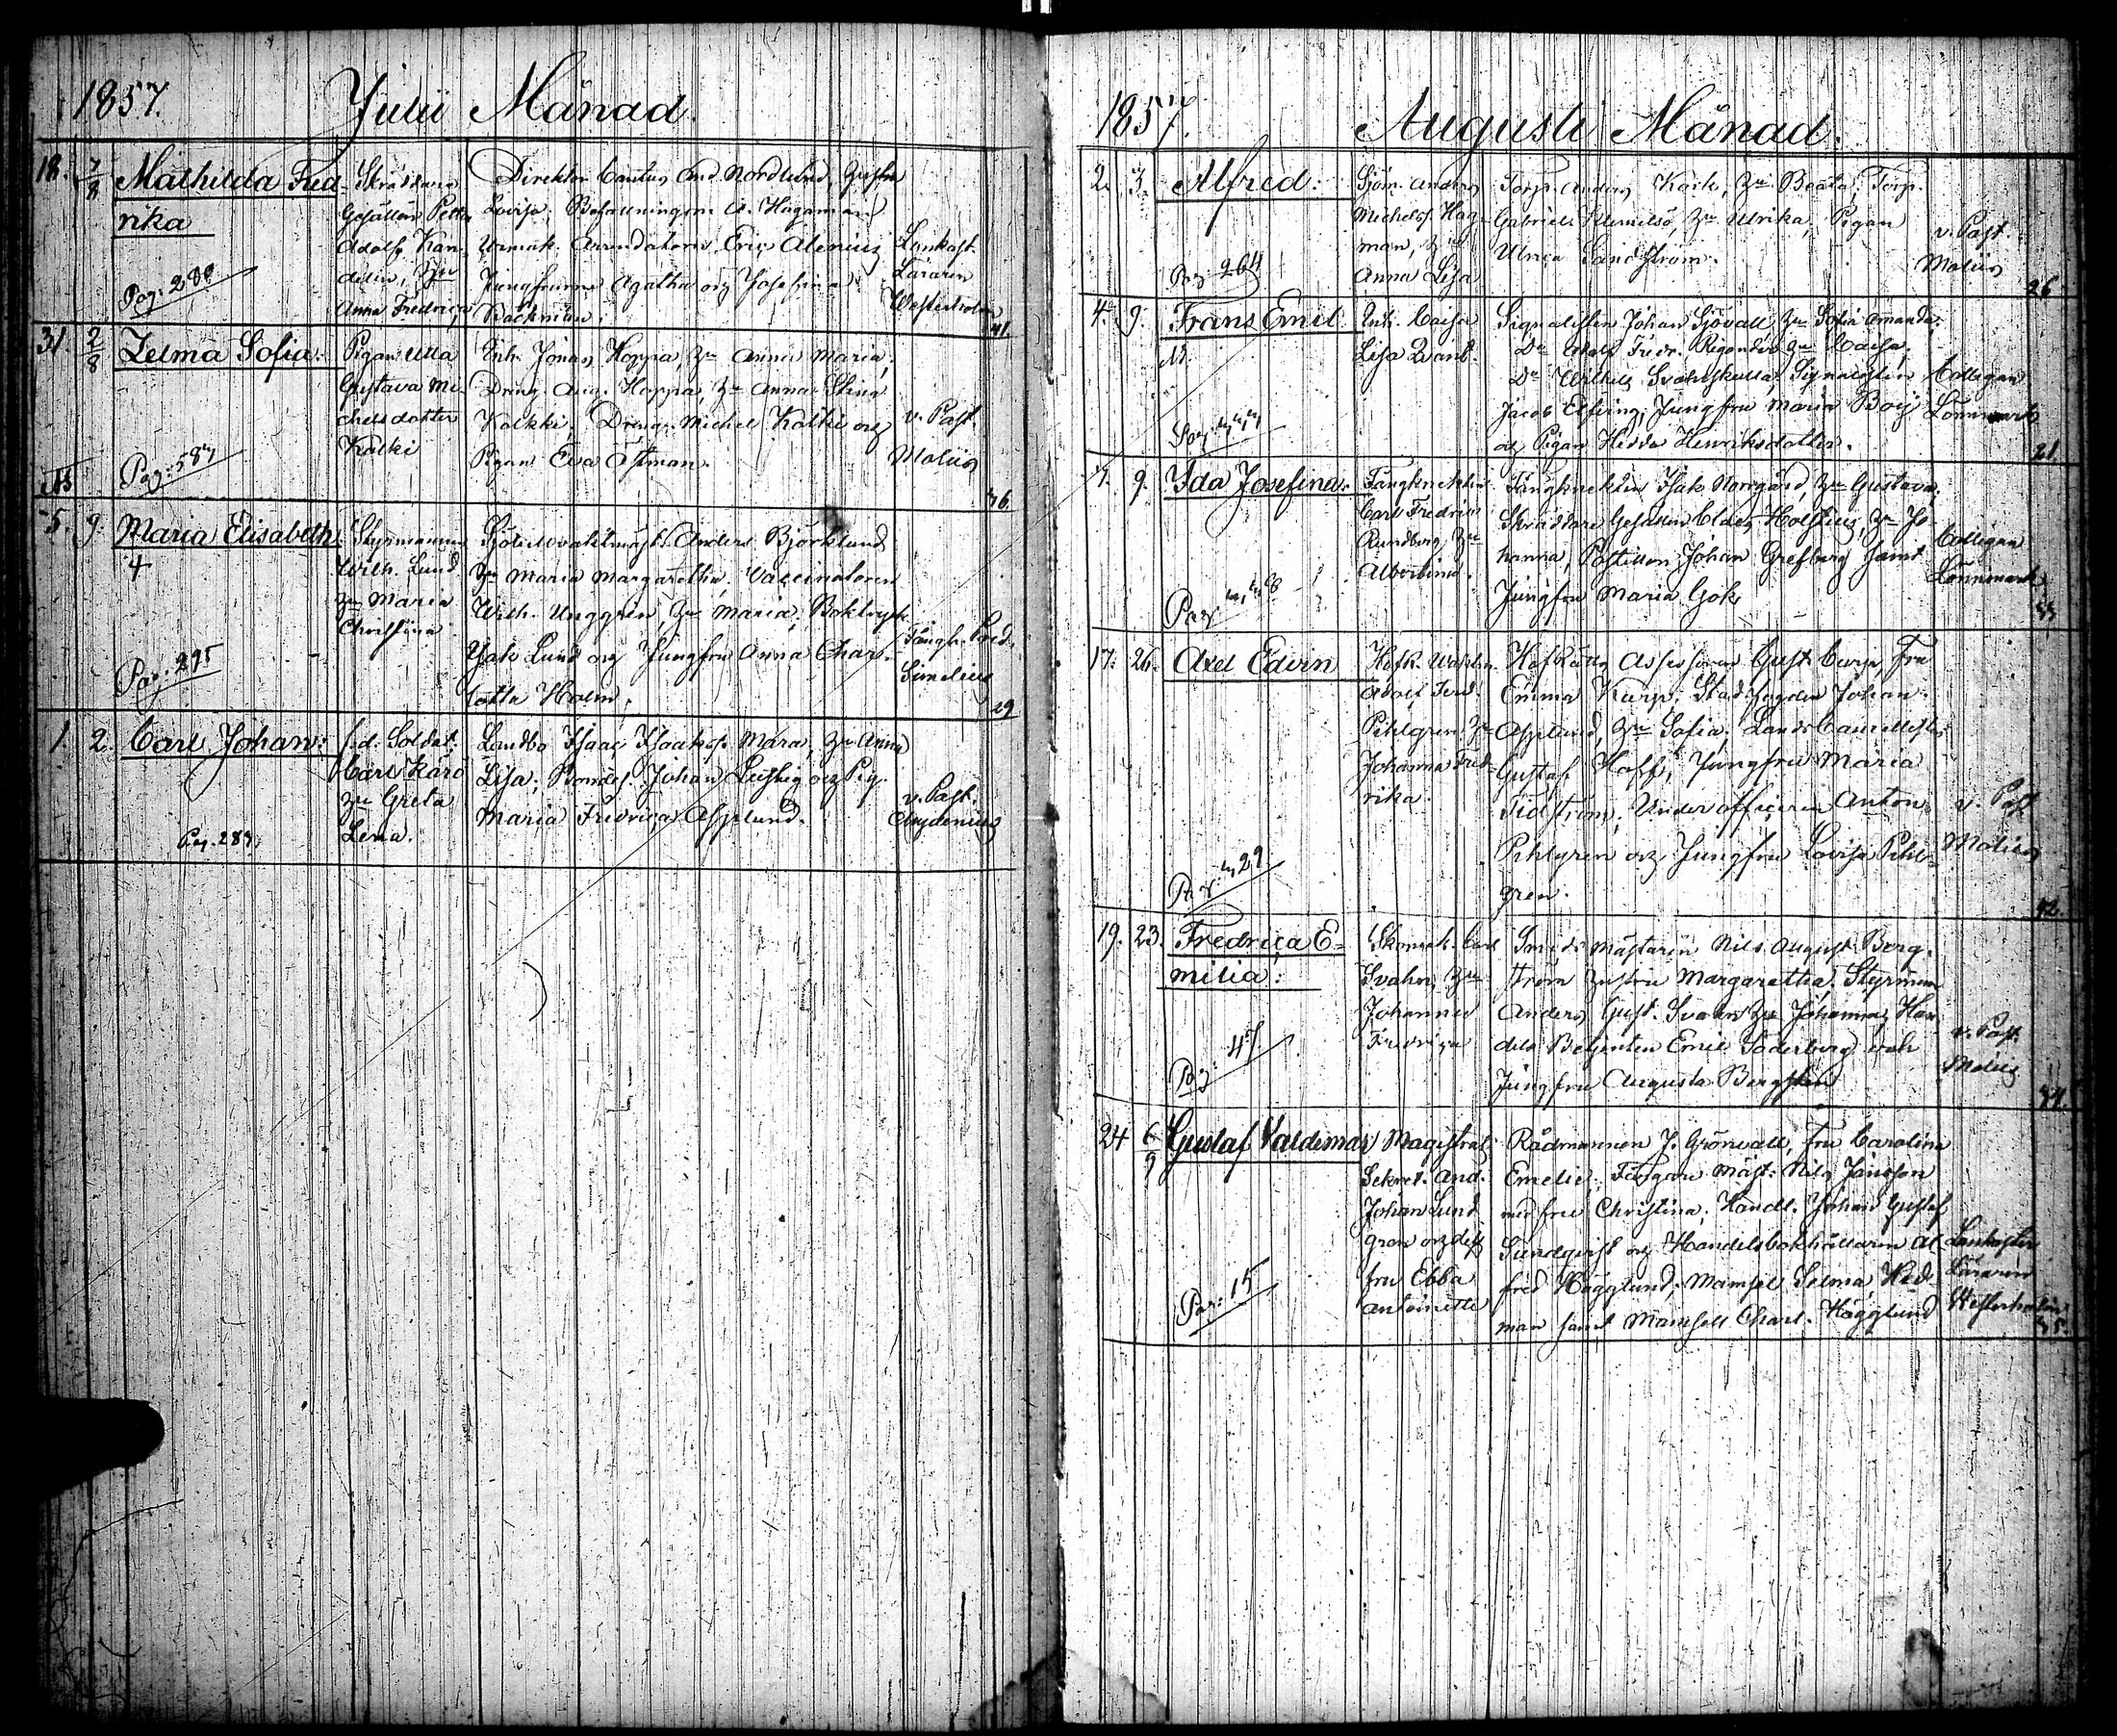 1857.
Julii Månad.
18. 7/8 Mathilda Fred-
rika
Pag: 280
Skräddare
Gesällen Petter
Adolf Kan-
delin, Hu
Anna Fredrica
Direktör Cantus And. Nordlund, hustru
Lovisa; Befallningsm. A. Hagaman
Urmak. Arrendatorn Eric Alenius
Jungfrurna Agatha och Josefina
Bäckman.
Lankast.
Läraren
Westerholm
41.
31. 2/8 Zelma Sofia:
Pag: 587
Pigan Ulla
Gustava Mi-
chelsdotter
Kalki
Enk. Jonas Hoppa, Hu Anna Maria,
Dräng Aug. Hoppa, Hu Anna Stina
Kalkki, Dräng Michel Kalki och
Pigan Eva Östman.
v. Past.
Molin
36.
5. 9. Maria Elisabeth
Pag: 295
Styrmannen
Wilh. Lund
Hu Maria
Christina
Sjötullvaktmäst. Anders Björklund
Hu Maria Margaretha, Vaccinatoren
Wilh. Unggren, Hu Maria, Boktryck.
Isak Lund och Jungfru Anna Char-
lotta Holm.
Fängh. Pred.
Simelius
29
1. 2. Carl Johan:
Pag. 287.
f.d. Soldat.
Carl Kärö
Hu Greta
Lena.
Landbo Isaac Isaaks. Mara, Hu Anna
Lisa; Bondes. Johan Leisteg och Pig.
Maria Fredrica Asplund.
v. Past.
Chydenius
1857.
Augusti Månad.
2. 3. Alfred:
Pag: 264
Sjöm. Anders
Michelss. Hag-
man, Hu
Anna Lisa
Torp. Anders Kock, Hu Beata; Torp.
Gabriel Klemetsö, Hu Ulrika, Pigan
Ulrica Sandström.
v. Past.
Molin
26
4. 9. Frans Emil
Enk. Caisa
Lisa Qvanb.
Signalisten Johan Sjövall Hu Sofia Amanda.
Do Adolf Fredr. Rigonder Hu Caisa,
Do Wilhels Svahlskulla, Signalisten
Jacob Elfving, Jungfru Maria Boij
och Pigan Hedda Henriksdotter.
Collegan
Lönnmark
21
7. 9. Ida Josefina:
Fångknekten
Carl Fredric
Rundberg, Hu
Albertina.
Fångknekten Isak Norrgård, Hu Gustava;
Skräddare Gesällen Claes Holstius, Hu Jo-
hanna, Postillon Johan Grefberg samt
Jungfru Maria Gök
Collegan
Lönnmark
33
17. 26. Axel Edvin
Pag: 329
Hofr. Waktm.
Adolf Ferd.
Pihlgren Hu
Johanna Fred-
rika.
Hofrätts Assessoren Gust. Carp, Fru
Emma Karp; Stadsfogden Johan
Asplund, Hu Sofia; Lands Cancellisten
Gustaf Hoff; Jungfru Maria
Tidström, Underofficeren Anton
Pihlgren och Jungfru Lovisa Pihl-
gren.
v. Past.
Molin
42.
19. 23. Fredrica E-
milia:
Pag: 47.
Skomak. Carl
Svahn, Hu
Johanna
Fredrica
Smeds Mästaren Nils August Berg-
ström hustru Margaretha; Styrman
Anders Gust. Svahn Hu Johanna, Han-
dels Betjenten Emil Söderberg och
Jungfru Augusta Bergsten
v. Past.
Molin
34.
24 6/9 Gustaf Valdemar
Pag: 15
Magistrats
Sekret. And.
Johan Lund
gren och dess
fru Ebba
Antoinette
Rådmannen J. Grönvall, Fru Carolina
Emelie; Färgare Mäst: Nils Jansson
med fru Christina; Handl. Johan Gustaf
Sundqvist och Handelsbokhållaren Al-
fred Högglund; Mamsel Selma Hed-
man samt Mamsell Charl. Högglund
Lankaster
Läraren
Westerholm
35.